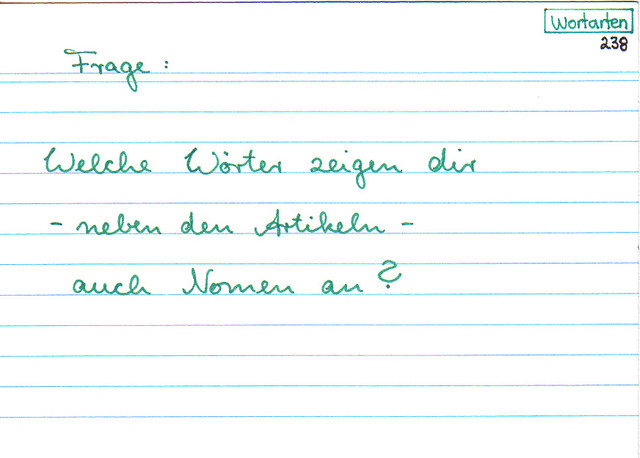 Wortarten
238
Frage :
Welche Wörter zeigen dir
- neben den Artikeln -
auch Nomen an ?